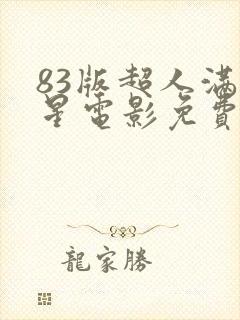 83版超人满
星電影免費
龍家勝